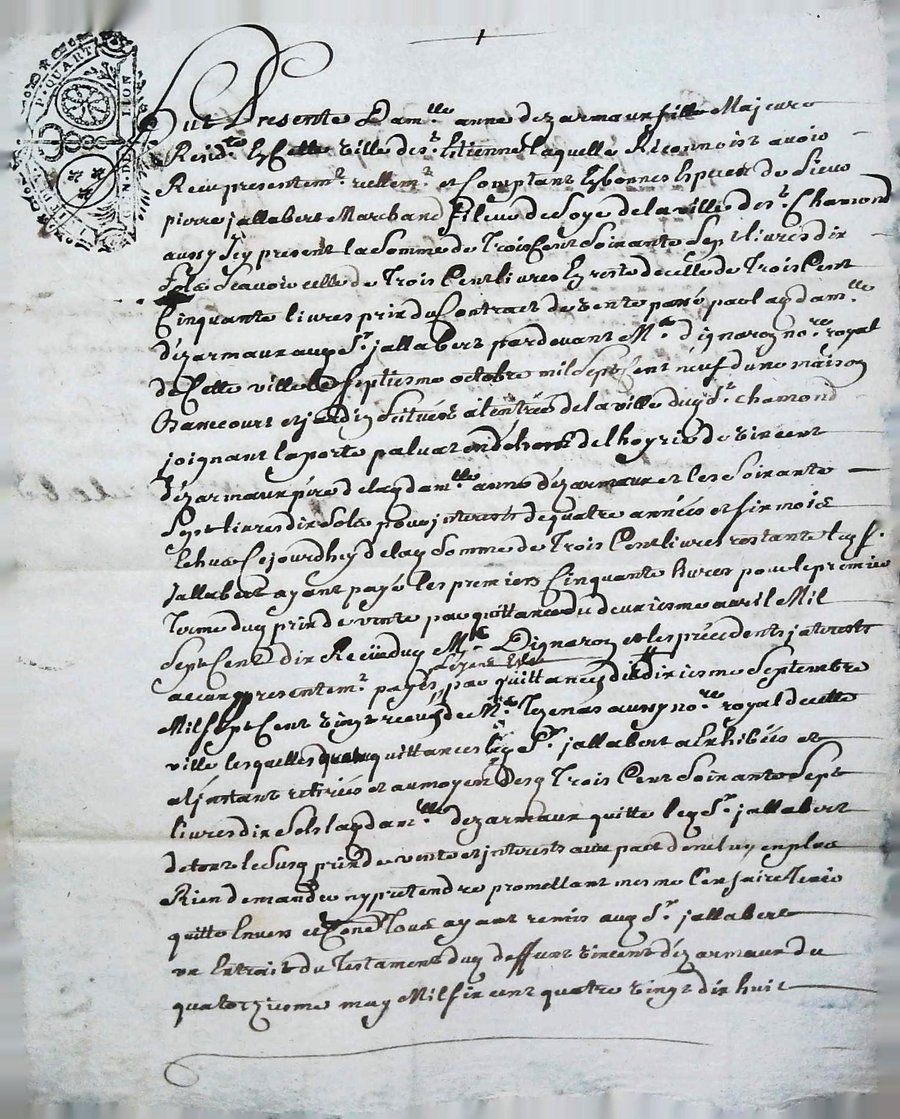 P. QUART
LION
Fut Presente Dam.lle anne dezarmaux fille Majeure
Resid.te En Cette ville de s.t Etienne laquelle Reconnoist avoir
Receu presentem.t reellem.t et Comptant En bonnes Especes de Sieur
pierre jallabert Marchand fileur de Soye de la ville de s.t Chamond
aussy Icy present la Somme de Trois Cent Soixante Sept livres dix
Sols Scavoir celle de Trois Cent livres En reste de celle de Trois Cent
Cinquante livres prix du Contract de vente passé par lad dam.lle
dézarmaux aud S.r jallabert pardevant M.e dignaron no.re royal
de Cette ville le Septiesme octobre mil Sept Cent neuf d'une maison
basse court et jardin Scitués a l'entrée de la ville dud s.t chamond
joignant la porte de l'hoyrie de vincent
dézarmaux pere de lad dam.lle anne dézarmaux et les Soixante
Sept livres dix Sols pour interests de quatre années et six mois
Echus Cejourdhuy de lad Somme de Trois Cent livres restante led S.r
Jallabert ayant payé les premiers Cinquante livres pour le premier
Terme dud prix de vente par quittance du deuxiesme avril Mil
Sept Cent dix Receüe dud M.e Dignaron et les précédents jnterests
presentem.t payés par quittances du dixiesme Septembre
Mil Sept Cent vingt receues de M.e Tezenas aussy no.re royal de cette
ville lesquelles quittances led S.r jallabert a Exhibées et
a l'jnstant retirées et au moyen desd Trois Cent Soixante Sept
livres dix Sols lad dam.lle dezarmaux quitte led S.r jallabert
de tout le Susd prix de vente et jnterests avec pact de ne luy en plus
Rien demander ny pretendre promettant mesme l'en faire Tenir
quitte Envers et Contre Tous ayant remis aud S.r jallabert
un Extrait du Testament dud deffunt vincent dézarmaux du
quatorziesme may Mil six cent quatre vingt dix huit